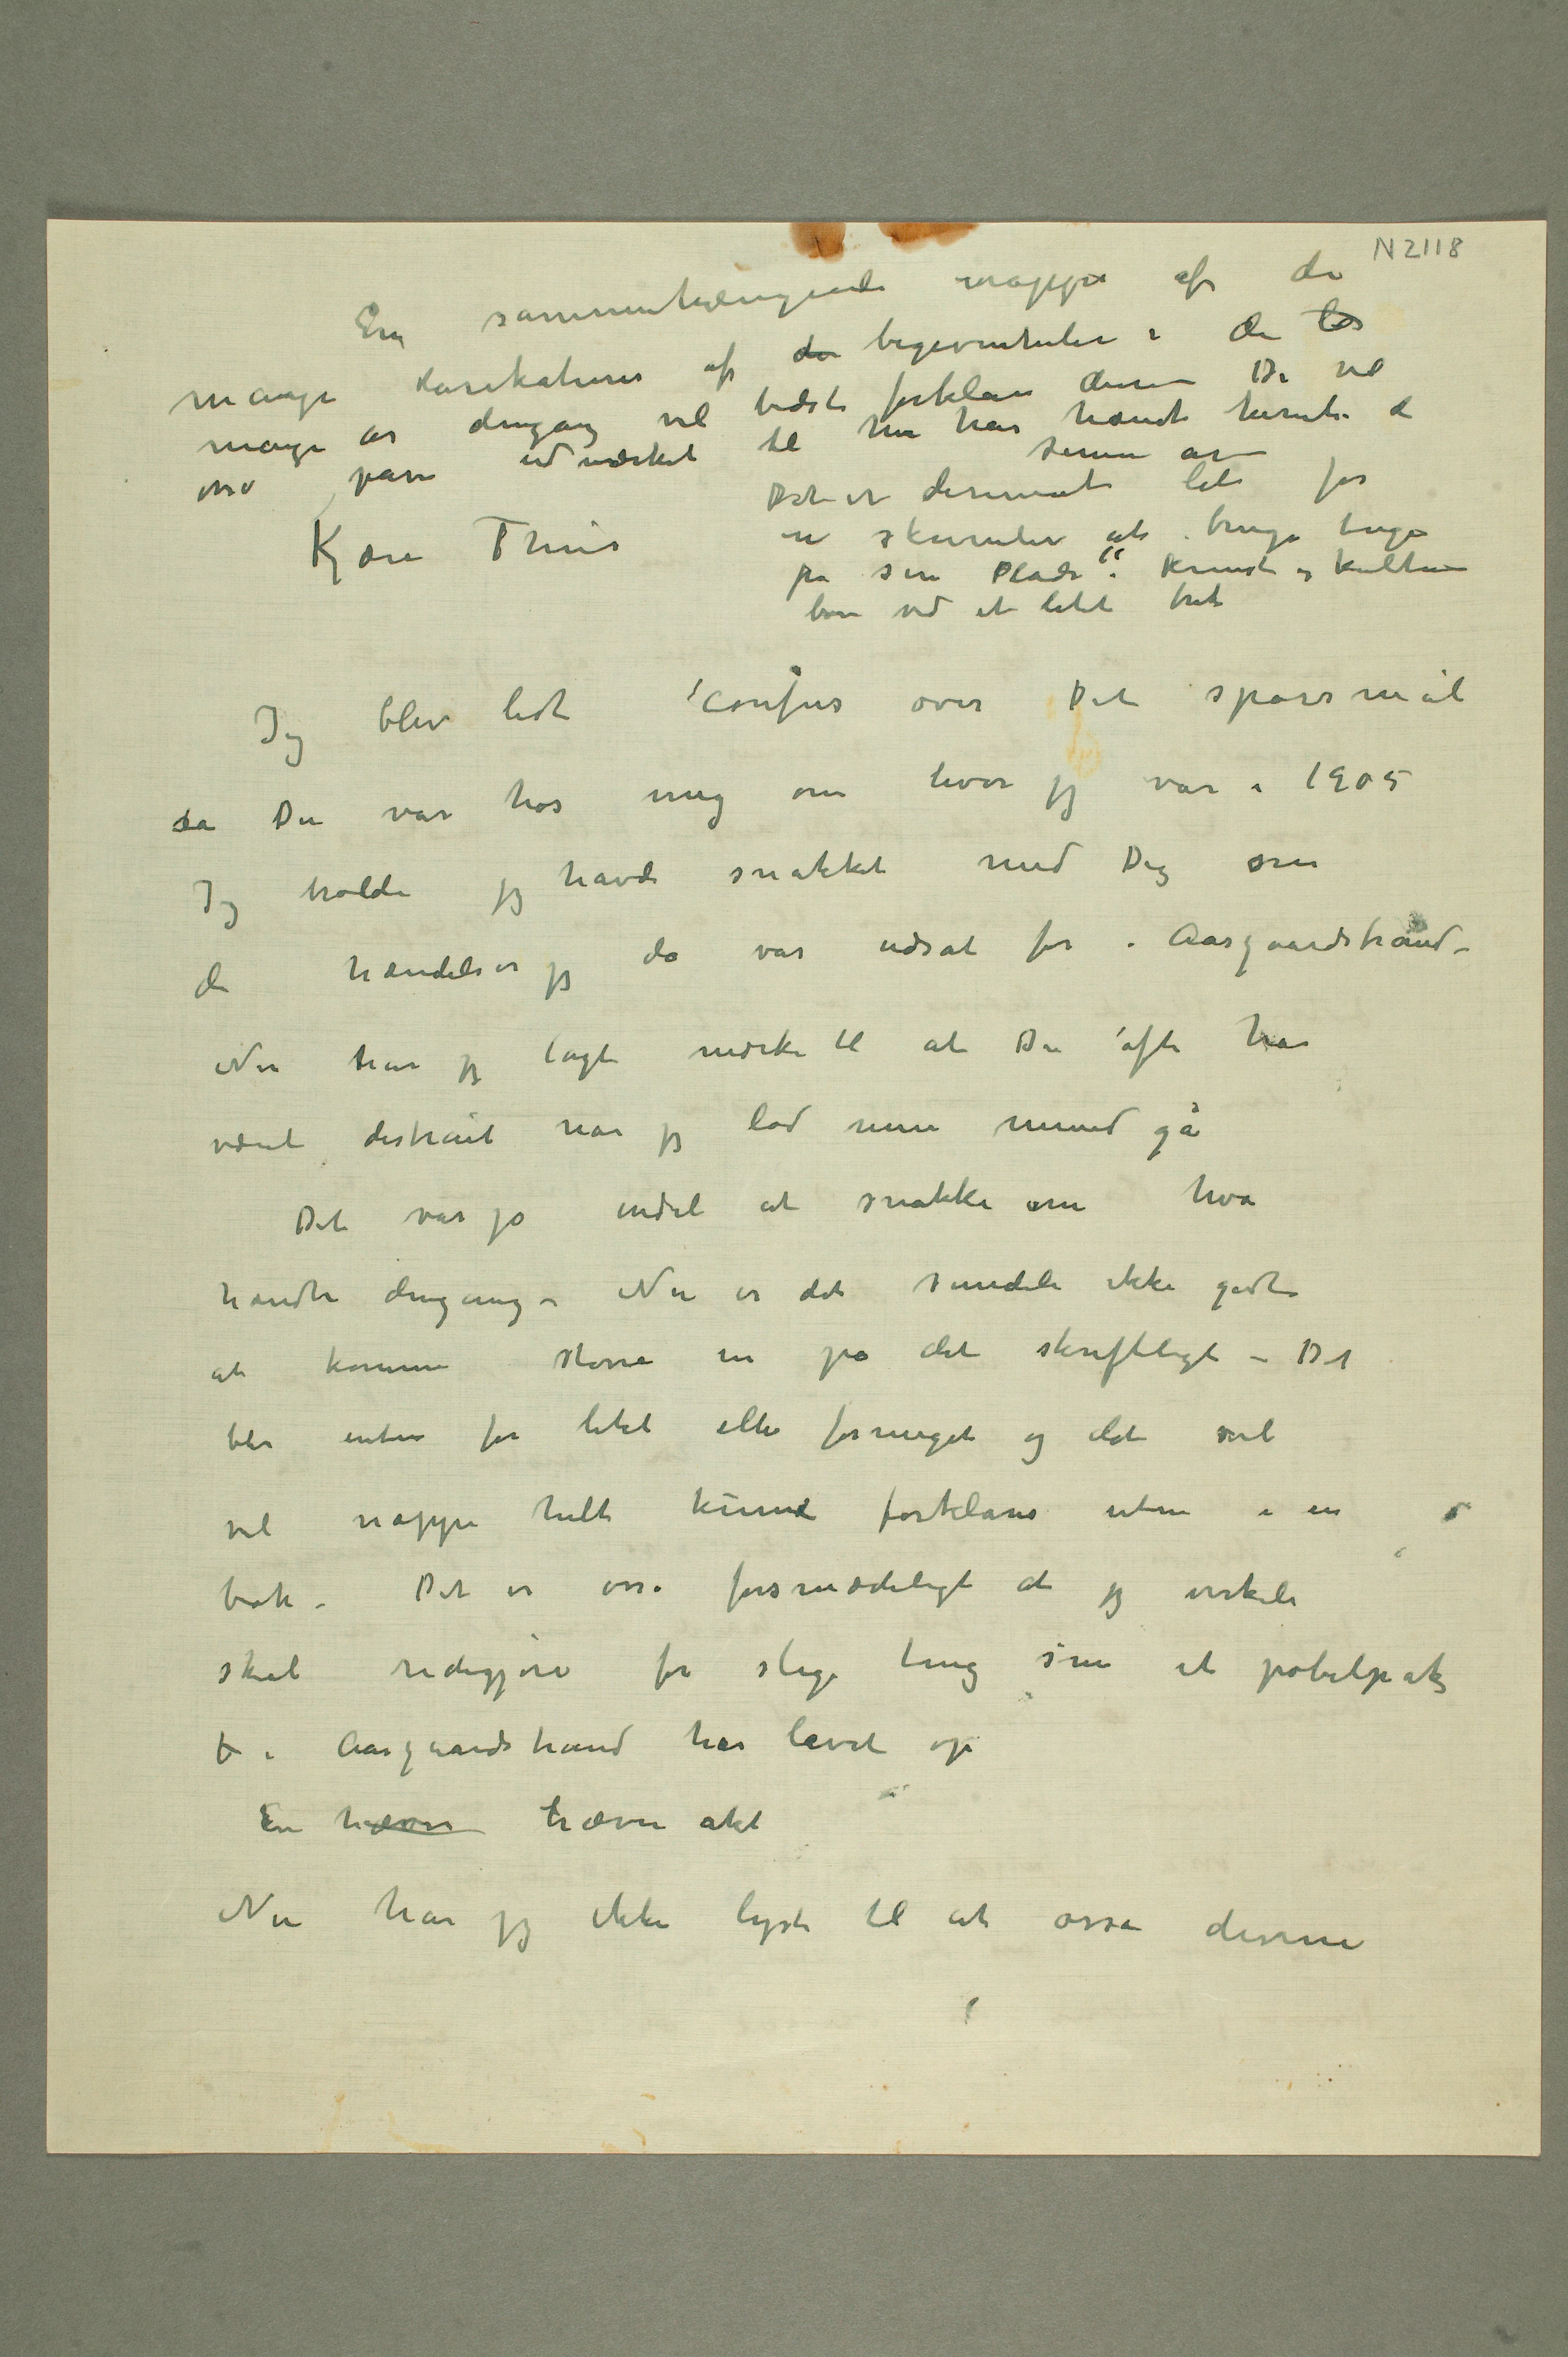 N 2118
En sammenhængende mappe af de
mange karikaturer af de begivenheder i de
mange år dengang vil bedst forklare denne De vil
osså passe udmærket til hva har hændt herute de
senere år
Kjære Thiis
Det er desværre let for
en skurk at bringe
på sin Plads i Kunst og kultur
bare ved et lidet
Jeg blev lidt confus over Dit spørsmål
da Du var hos mig om hvor jeg var i 1905
Jeg troede jeg havde snakket med Dig om
de hændelser jeg da var udsat for i Aasgaardstrand –
Nu har jeg lagt mærke til at Du ofte har
været distrait når jeg lod min mund gå
Det var jo endel at snakke om hva
hændte dengang – Nu er det sandelig ikke godt
at komme større in på det skriftligt – Det
blir enten for lidet eller formeget og det vil
vel neppe helt kunde forklares uten i en
bok – Det er osså forsmædeligt at jeg virkelig
skal redegjøre for slige ting som et pøbelpak
i Aasgaardstrand har lavet op
En hævn hævn akt
Nu har jeg ikke lyst til at osså denne